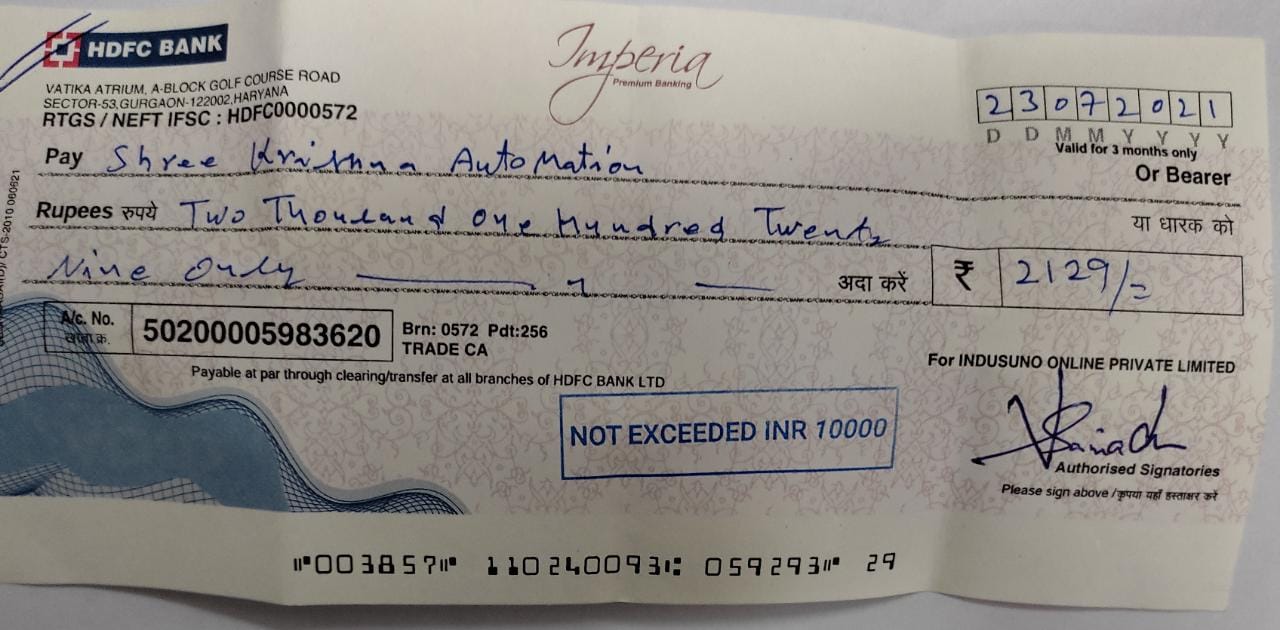 HDFC BANK
Imperia
Premium Banking
VATIKA ATRIUM, A-BLOCK GOLF COURSE ROAD
SECTOR-53,GURGAON-122002,HARYANA
RTGS / NEFT IFSC : HDFC0000572
23072021
D D M M Y Y Y Y
Valid for 3 months only
Pay Shree Krishna Automation
Or Bearer
Rupees रुपये Two Thousand One Hundred Twenty
या धारक को
Nine Only
अदा करें ₹ 2129/=
A/c. No.
खाता क्र.
50200005983620
Brn: 0572 Pdt:256
TRADE CA
Payable at par through clearing/transfer at all branches of HDFC BANK LTD
For INDUSUNO ONLINE PRIVATE LIMITED
NOT EXCEEDED INR 10000
Authorised Signatories
Please sign above /कृपया यहाँ हस्ताक्षर करें
CTS-2010 060621
⑈003857⑈ 110240093⑆ 059293⑈ 29